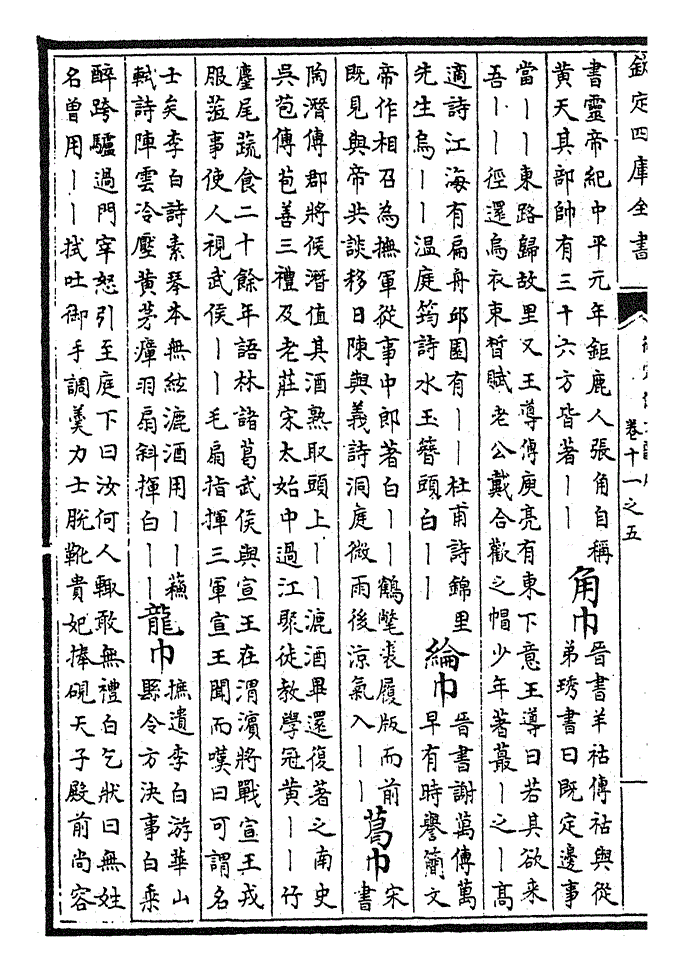 欽定四庫全書
卷十一之五
書靈帝紀中平元年鉅鹿人張角自稱
黃天其部帥有三十六方皆著丨丨
角巾
晉書羊祜傳祜與從
弟琇書曰既定邊事
當丨丨東路歸故里又王導傳庾亮有東下意王導曰若其欲來
吾丨丨徑還烏衣束皙賦老公戴合歡之帽少年著蕞丨之丨高
適詩江海有扁舟邱園有丨丨杜甫詩錦里
先生烏丨丨溫庭筠詩水玉簪頭白丨丨
綸巾
晉書謝萬傳萬
早有時譽簡文
帝作相召為撫軍從事中郎著白丨丨鶴氅裘履版而前
既見與帝共談移日陳與義詩洞庭微雨後涼氣入丨丨
葛巾
宋
書
陶潛傳郡將候潛值其酒熟取頭上丨丨漉酒畢還復著之南史
吳苞傳苞善三禮及老莊宋太始中過江聚徒教學冠黃丨丨竹
麈尾蔬食二十餘年語林諸葛武侯與宣王在渭濱將戰宣王戎
服蒞事使人視武侯丨丨毛扇指揮三軍宣王聞而嘆曰可謂名
士矣李白詩素琴本無絃漉酒用丨丨蘇
軾詩陣雲冷壓黃茅瘴羽扇斜揮白丨丨
龍巾
摭遺李白游華山
縣令方決事白乗
醉跨驢過門宰怒引至庭下曰汝何人輒敢無禮白乞狀曰無姓
名曾用丨丨拭吐御手調羹力士脫靴貴妃捧硯天子殿前尚容